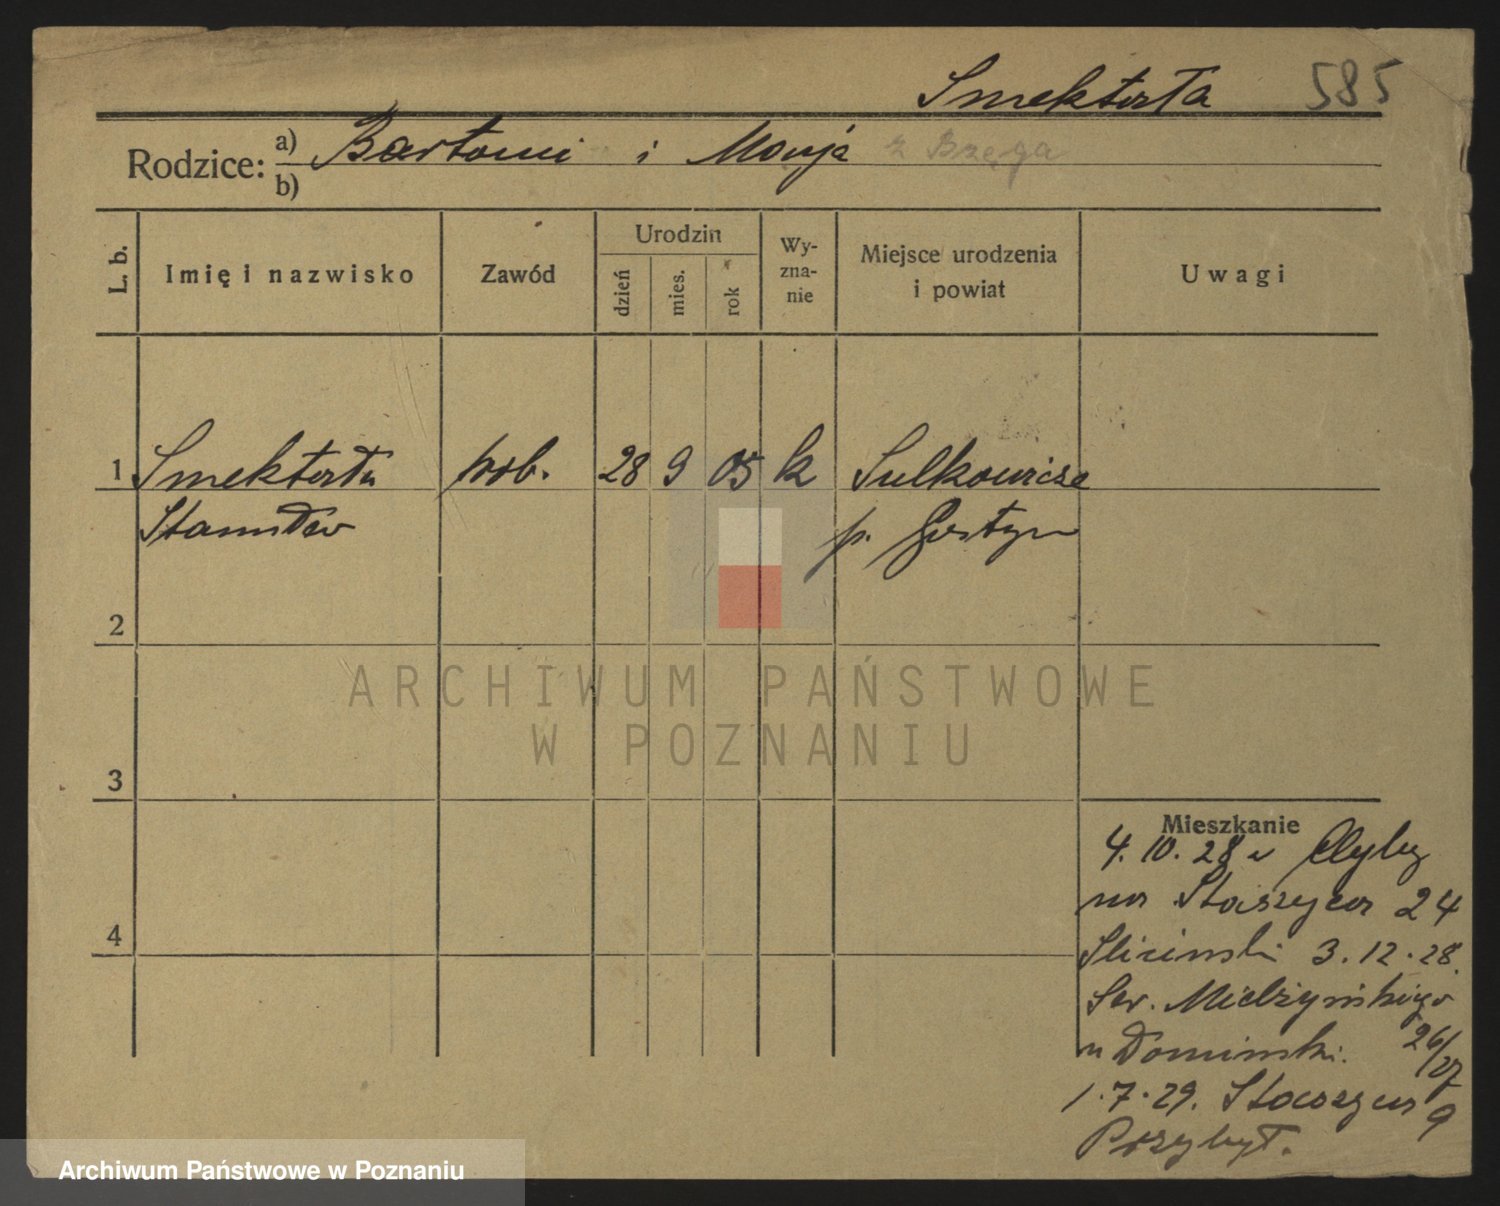 Smektała 585
Rodzice: a) Bartłomi i Maryja z Bzęga
b)
L. b. Imię i nazwisko Zawód Urodzin dzień mies. rok Wy-zna-nie Miejsce urodzenia i powiat Uwagi
1 Smektała rob. 28 9 05 k Sulkowice
Stanisław p. Gostyn
2
3
4
Mieszkanie
4. 10. 28
Staszyca 24
3. 12. 28.
Sew. Mielżyńskiego
u Dominski. 26/27
1. 7. 29. Staszyca 9
Przybył.
ARCHIWUM PAŃSTWOWE
W POZNANIU
Archiwum Państwowe w Poznaniu